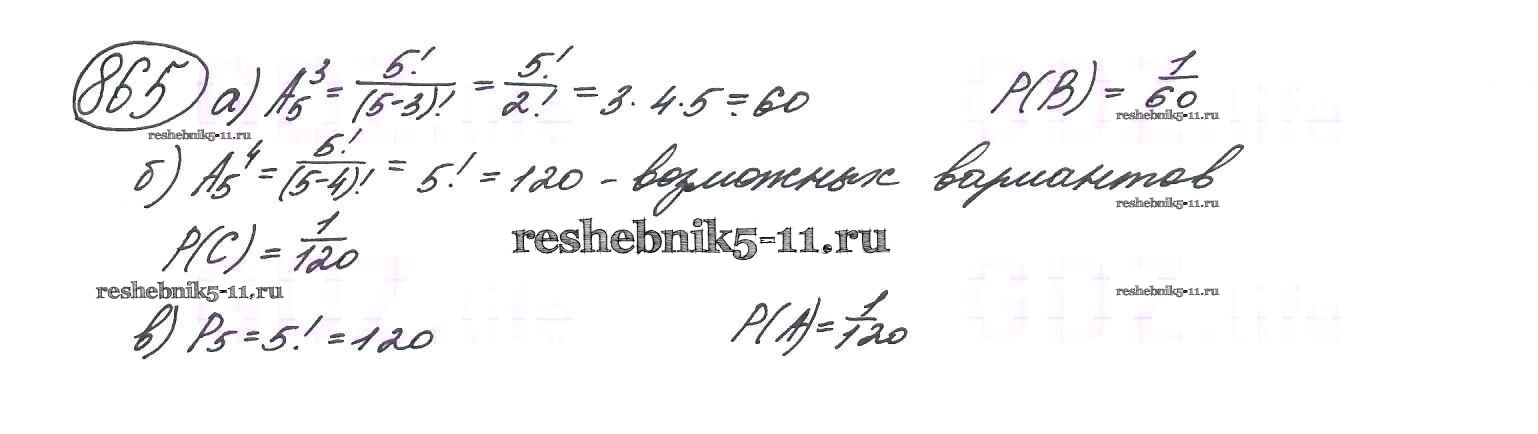 865 а) A₅³ = 5!/(5-3)! = 5!/2! = 3·4·5 = 60 P(B) = 1/60
reshebnik5-11.ru reshebnik5-11.ru
б) A₅⁴ = 5!/(5-4)! = 5! = 120 - возможных вариантов
reshebnik5-11.ru
P(C) = 1/120 reshebnik5-11.ru
reshebnik5-11.ru reshebnik5-11.ru
в) P₅ = 5! = 120 P(A) = 1/120